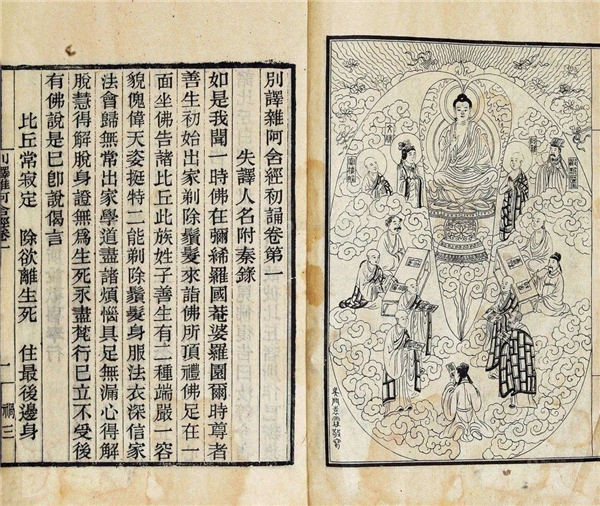 別譯雜阿含經初誦卷第一
失譯人名附秦錄
如是我聞一時佛在彌絺羅國菴婆羅園爾時尊者
善生初始出家剃除鬚髮來詣佛所頂禮佛足在一
面坐佛告諸比丘此族姓子善生有二種端嚴一容
貌傀偉天姿挺特二能剃除鬚髮身服法衣深信家
法會歸無常出家學道盡諸煩惱具足無漏心得解
脫慧得解脫身證無爲生死永盡梵行已立不受後
有佛說是已卽說偈言
比丘常寂定　除欲離生死　住最後邊身
別譯雜阿含經卷一　一　禍三